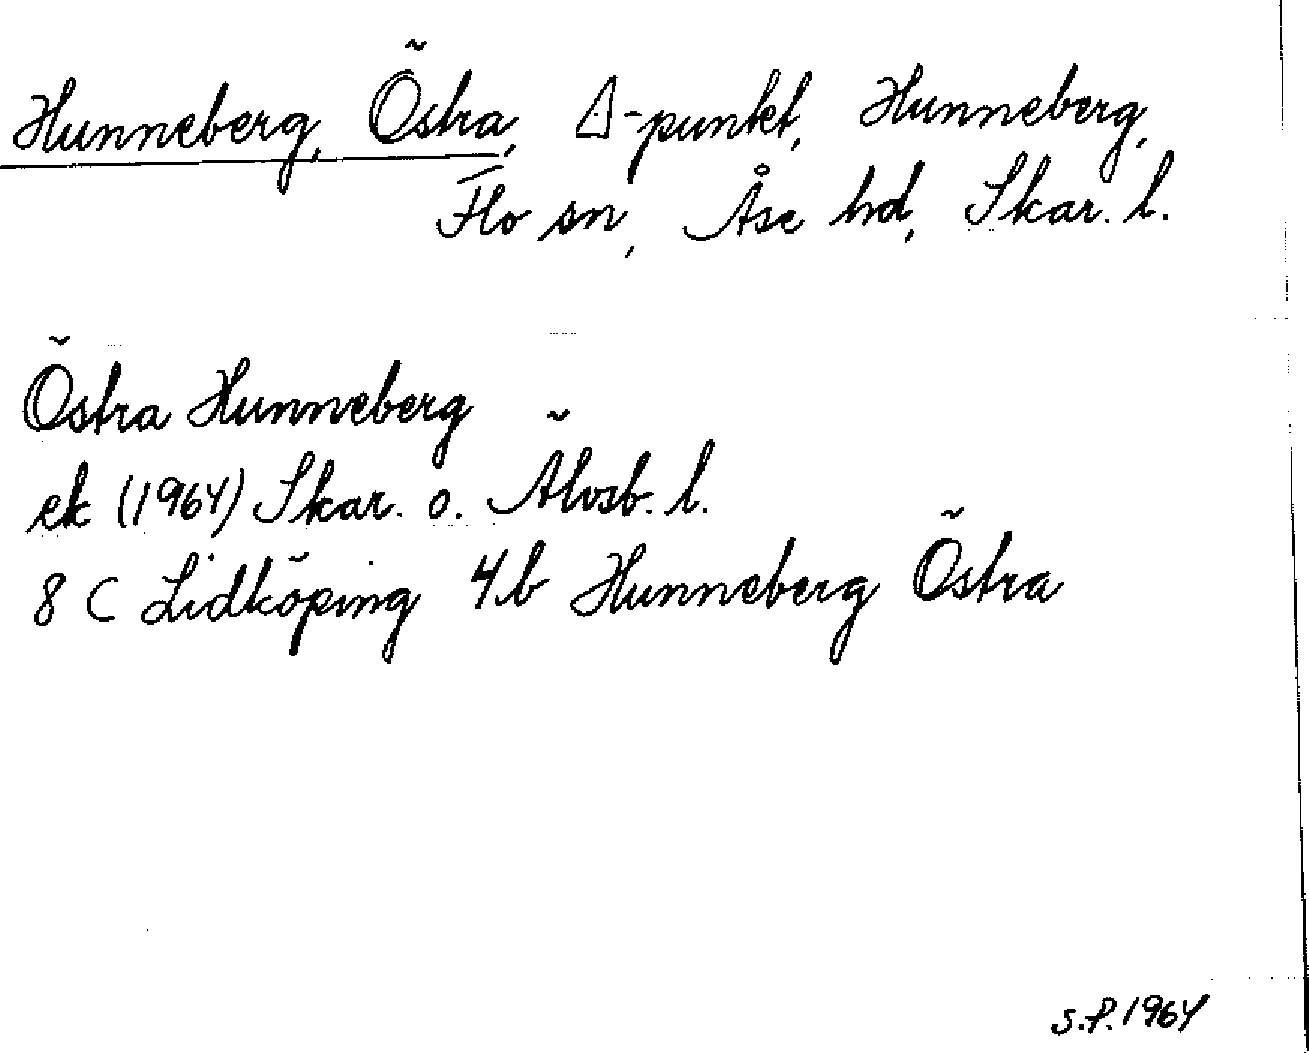 Hunneberg, Östra, Δ-punkt, Hunneberg,
Flo sn, Åse hd, Skar. l.
Östra Hunneberg
ek (1964) Skar. o. Älvsb. l.
8 C Lidköping 4b Hunneberg Östra
S.P. 1964